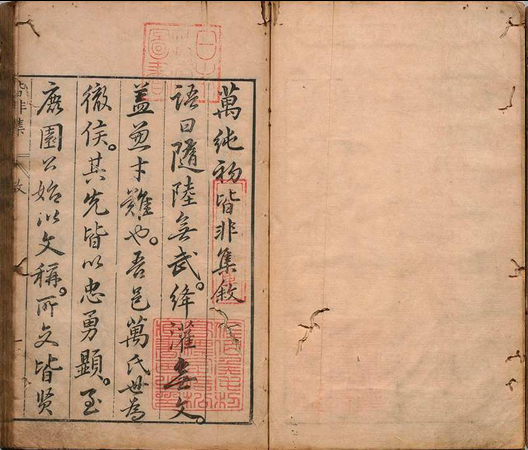 萬純初皆非集敘
語曰隨陸無武。絳灌無文。
蓋兼才難也。吾邑萬氏世為
徹侯。其先皆以忠勇顯。至
鹿園公始以文稱。所交皆賢
皆非集